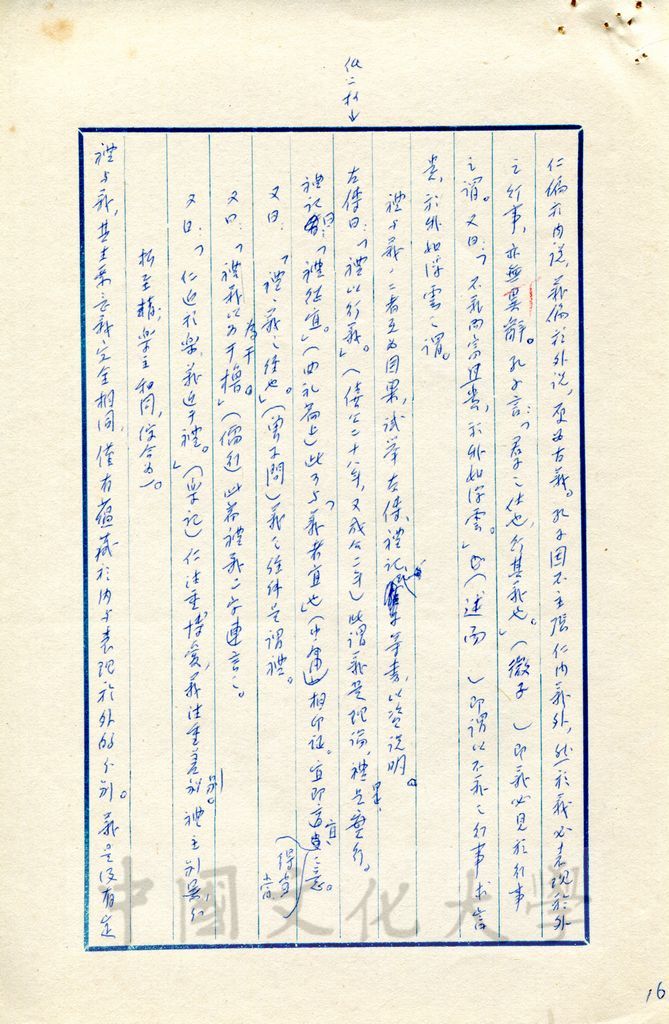 仁偏於內說，義偏於外說，原為古義。孔子固不主張仁內義外，然於義必表現於外
之行事，亦無異辭。孔子言：「君子之仕也，行其義也。」（微子　）即義必見於行事
之謂。又曰：「不義而富且貴，於我如浮雲。」（述而　）即謂以不義之行事求富
貴，於我如浮雲之謂。
禮與義，二者互為因果，試舉左傳、禮記等書，以資說明。
左傳曰：「禮以行義。」（僖公二十八年，又成公二年）此謂義是理論，禮是實行。
禮記曰：「禮從宜。」（曲禮篇上）此可與「義者宜也」（中庸）相印證。宜即適宜之意。
得當
又曰：「禮、義之經也。」（曾子問）義之條件是謂禮。
又曰：「禮義以為干櫓。」（儒行）此為禮義二字連言之。
又曰：「仁近於樂，義近于禮。」（樂記）仁注重博愛，義注重差別。禮主別異，
樂主和同，綜合為一。
禮與義，其主要意義完全相同，僅有蘊藏於內與表現於外的分別。義是沒有定
低二格
16
中國文化大學